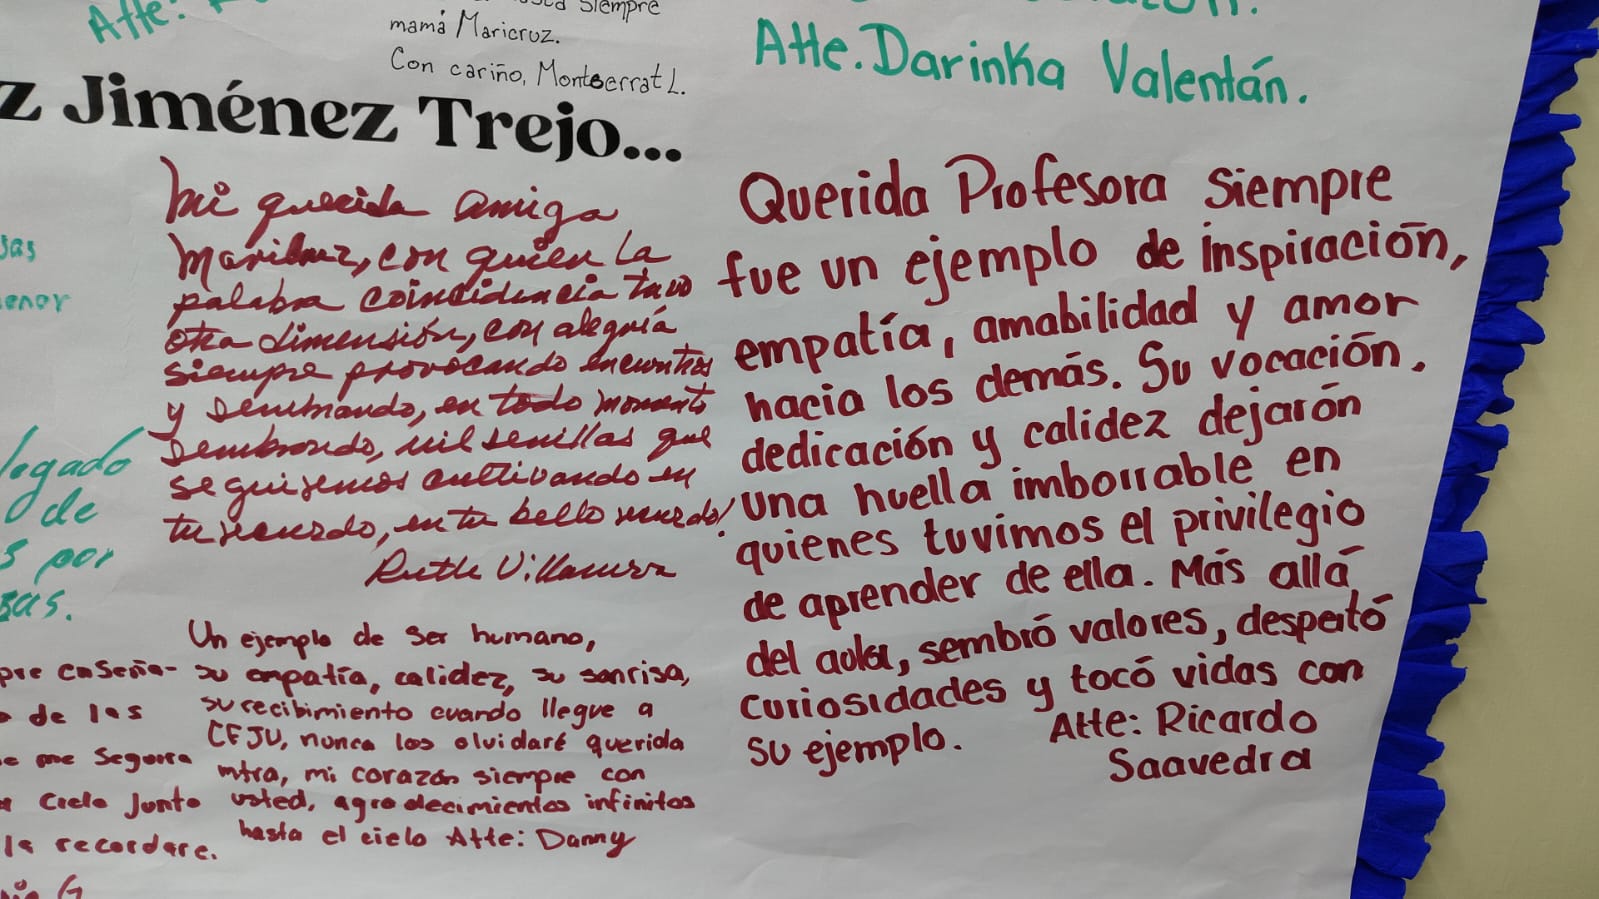 Atte:
siempre
mamá Maricruz.
Con cariño, Montserrat L.
Atte. Darinka Valentán.
z Jiménez Trejo...
Mi querida amiga
Maricruz, con quien la
palabra coincidencia tuvo
otra dimensión, con alegría
siempre provocando encuentros
y sembrando, en todo momento
sembrando, mil semillas que
seguiremos cultivando en
tu recuerdo, en tu bello recuerdo!
Ruth Villanueva
Querida Profesora Siempre
fue un ejemplo de inspiración,
empatía, amabilidad y amor
hacia los demás. Su vocación.
dedicación y calidez dejarón
una huella imborrable en
quienes tuvimos el privilegio
de aprender de ella. Más allá
del aula, sembró valores, despertó
curiosidades y tocó vidas con
su ejemplo.
Atte: Ricardo
Saavedra
Un ejemplo de ser humano,
su empatía, calidez, su sonrisa,
su recibimiento cuando llegue a
CFJU, nunca los olvidaré querida
mtra, mi corazón siempre con
usted, agradecimientos infinitos
hasta el cielo Atte: Danny
enor
legado
de
s por
pre enseña-
de los
e me seguira
cielo junto
la recordare.
G